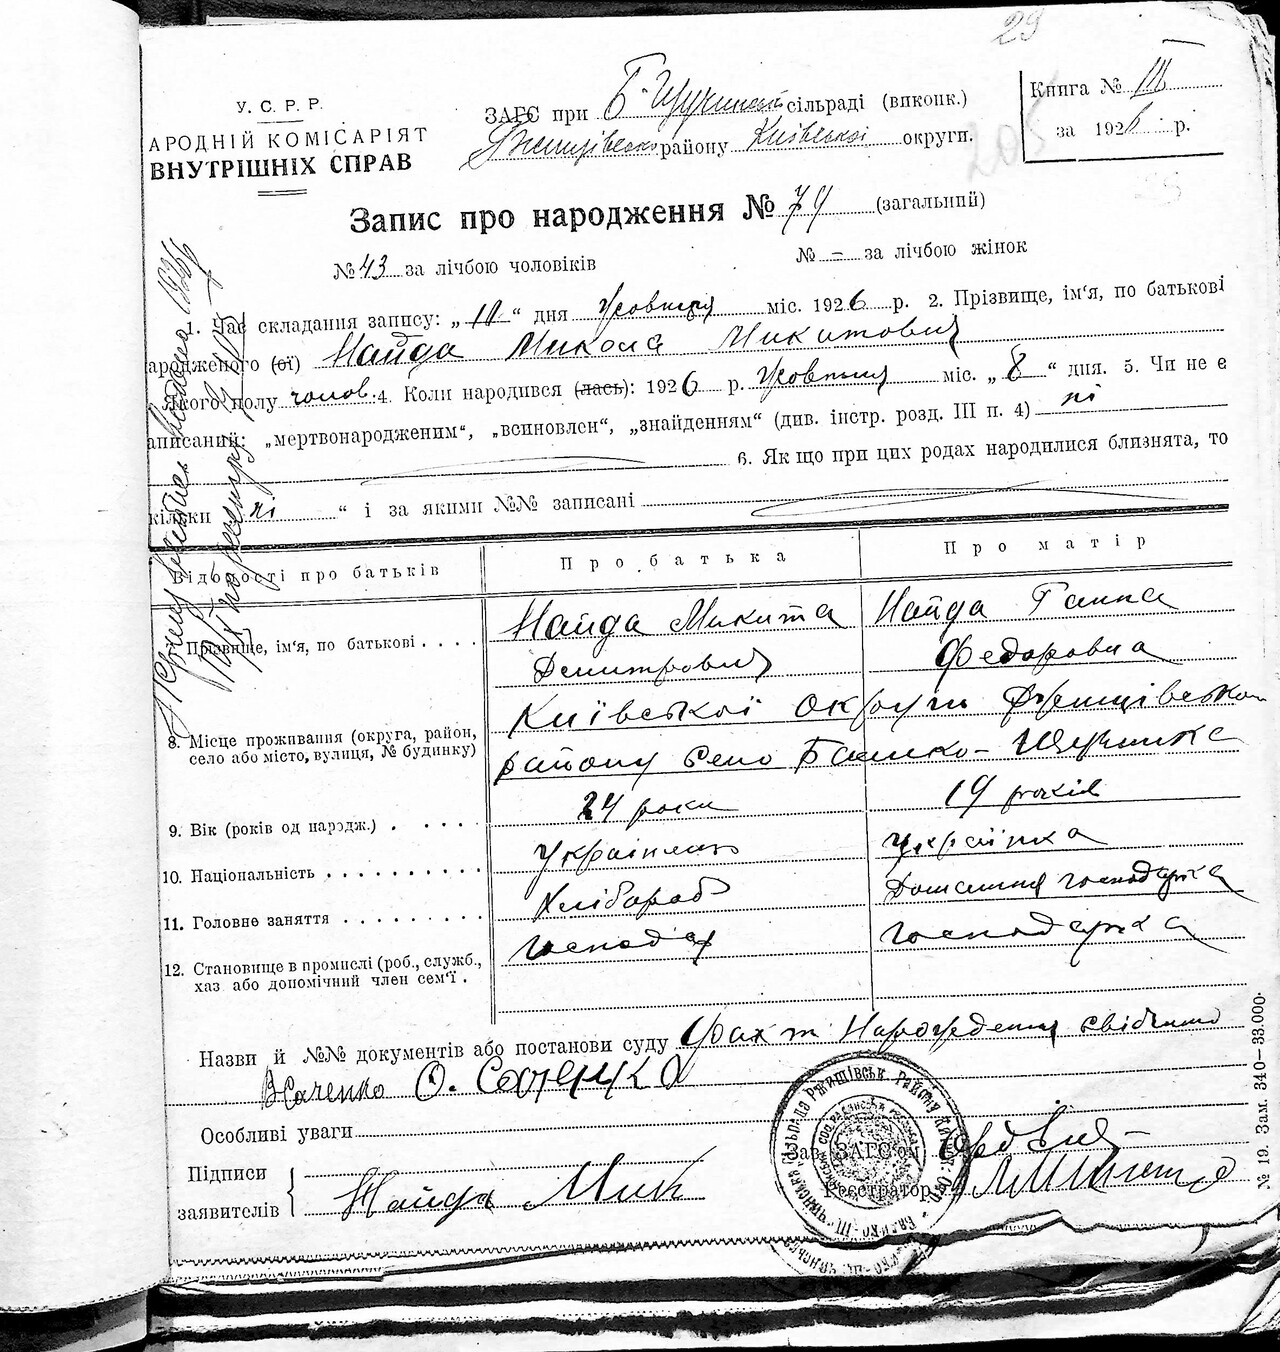 29
У. С. Р. Р.
АРОДНІЙ КОМІСАРІЯТ
ВНУТРІШНІХ СПРАВ
ЗАГС при Б-Щучинській сільраді (виконк.)
Ржищівсько району Київської округи.
Книга № III
за 1926 р.
205
Запис про народження № 74 (загальний)
№ 43 за лічбою чоловіків № – за лічбою жінок
1. Час складання запису: „10“ дня Жовтня міс. 1926 р. 2. Прізвище, ім'я, по батькові
ародженого (ої) Найда Микола Микитович
Якого полу чолов. 4. Коли народився (лась): 1926 р. Жовтня міс. „8“ дня. 5. Чи не є
аписаний: „мертвонародженим“, „всиновлен“, „знайденням“ (див. інстр. розд. III п. 4) ні
6. Як що при цих родах народилися близнята, то
кільки ні “ і за якими №№ записані
Відомості про батьків Про батька Про матір
Прізвище, ім'я, по батькові . . . . Найда Микита Найда Ганна
Дмитрович Федоровна
8. Місце проживання (округа, район, село або місто, вулиця, № будинку) Київської округи Ржищівсько
району село Балико-Щучинка
9. Вік (років од народж.) . . . . . 24 роки 19 років
10. Національність . . . . . . . . . . Українець Українка
11. Головне заняття . . . . . . . . . Хлібороб Домашня господарка
12. Становище в промислі (роб., служб., хаз або допомічний член сем'ї . Господар господарка
Назви й №№ документів або постанови суду Факт Народження свідчать
О. Саченко
Особливі уваги
Підписи
заявителів Найда Мик
Зав. ЗАГС'ом
Реєстратор
№ 19. Зам. 340—33.000.